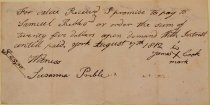 For value Received I promise to pay to
Samuel or order the sum of
twenty five dollars upon demand With Interest
until paid. york August 7th 1812
Witness his
James X Cook
Susanna Preble mark